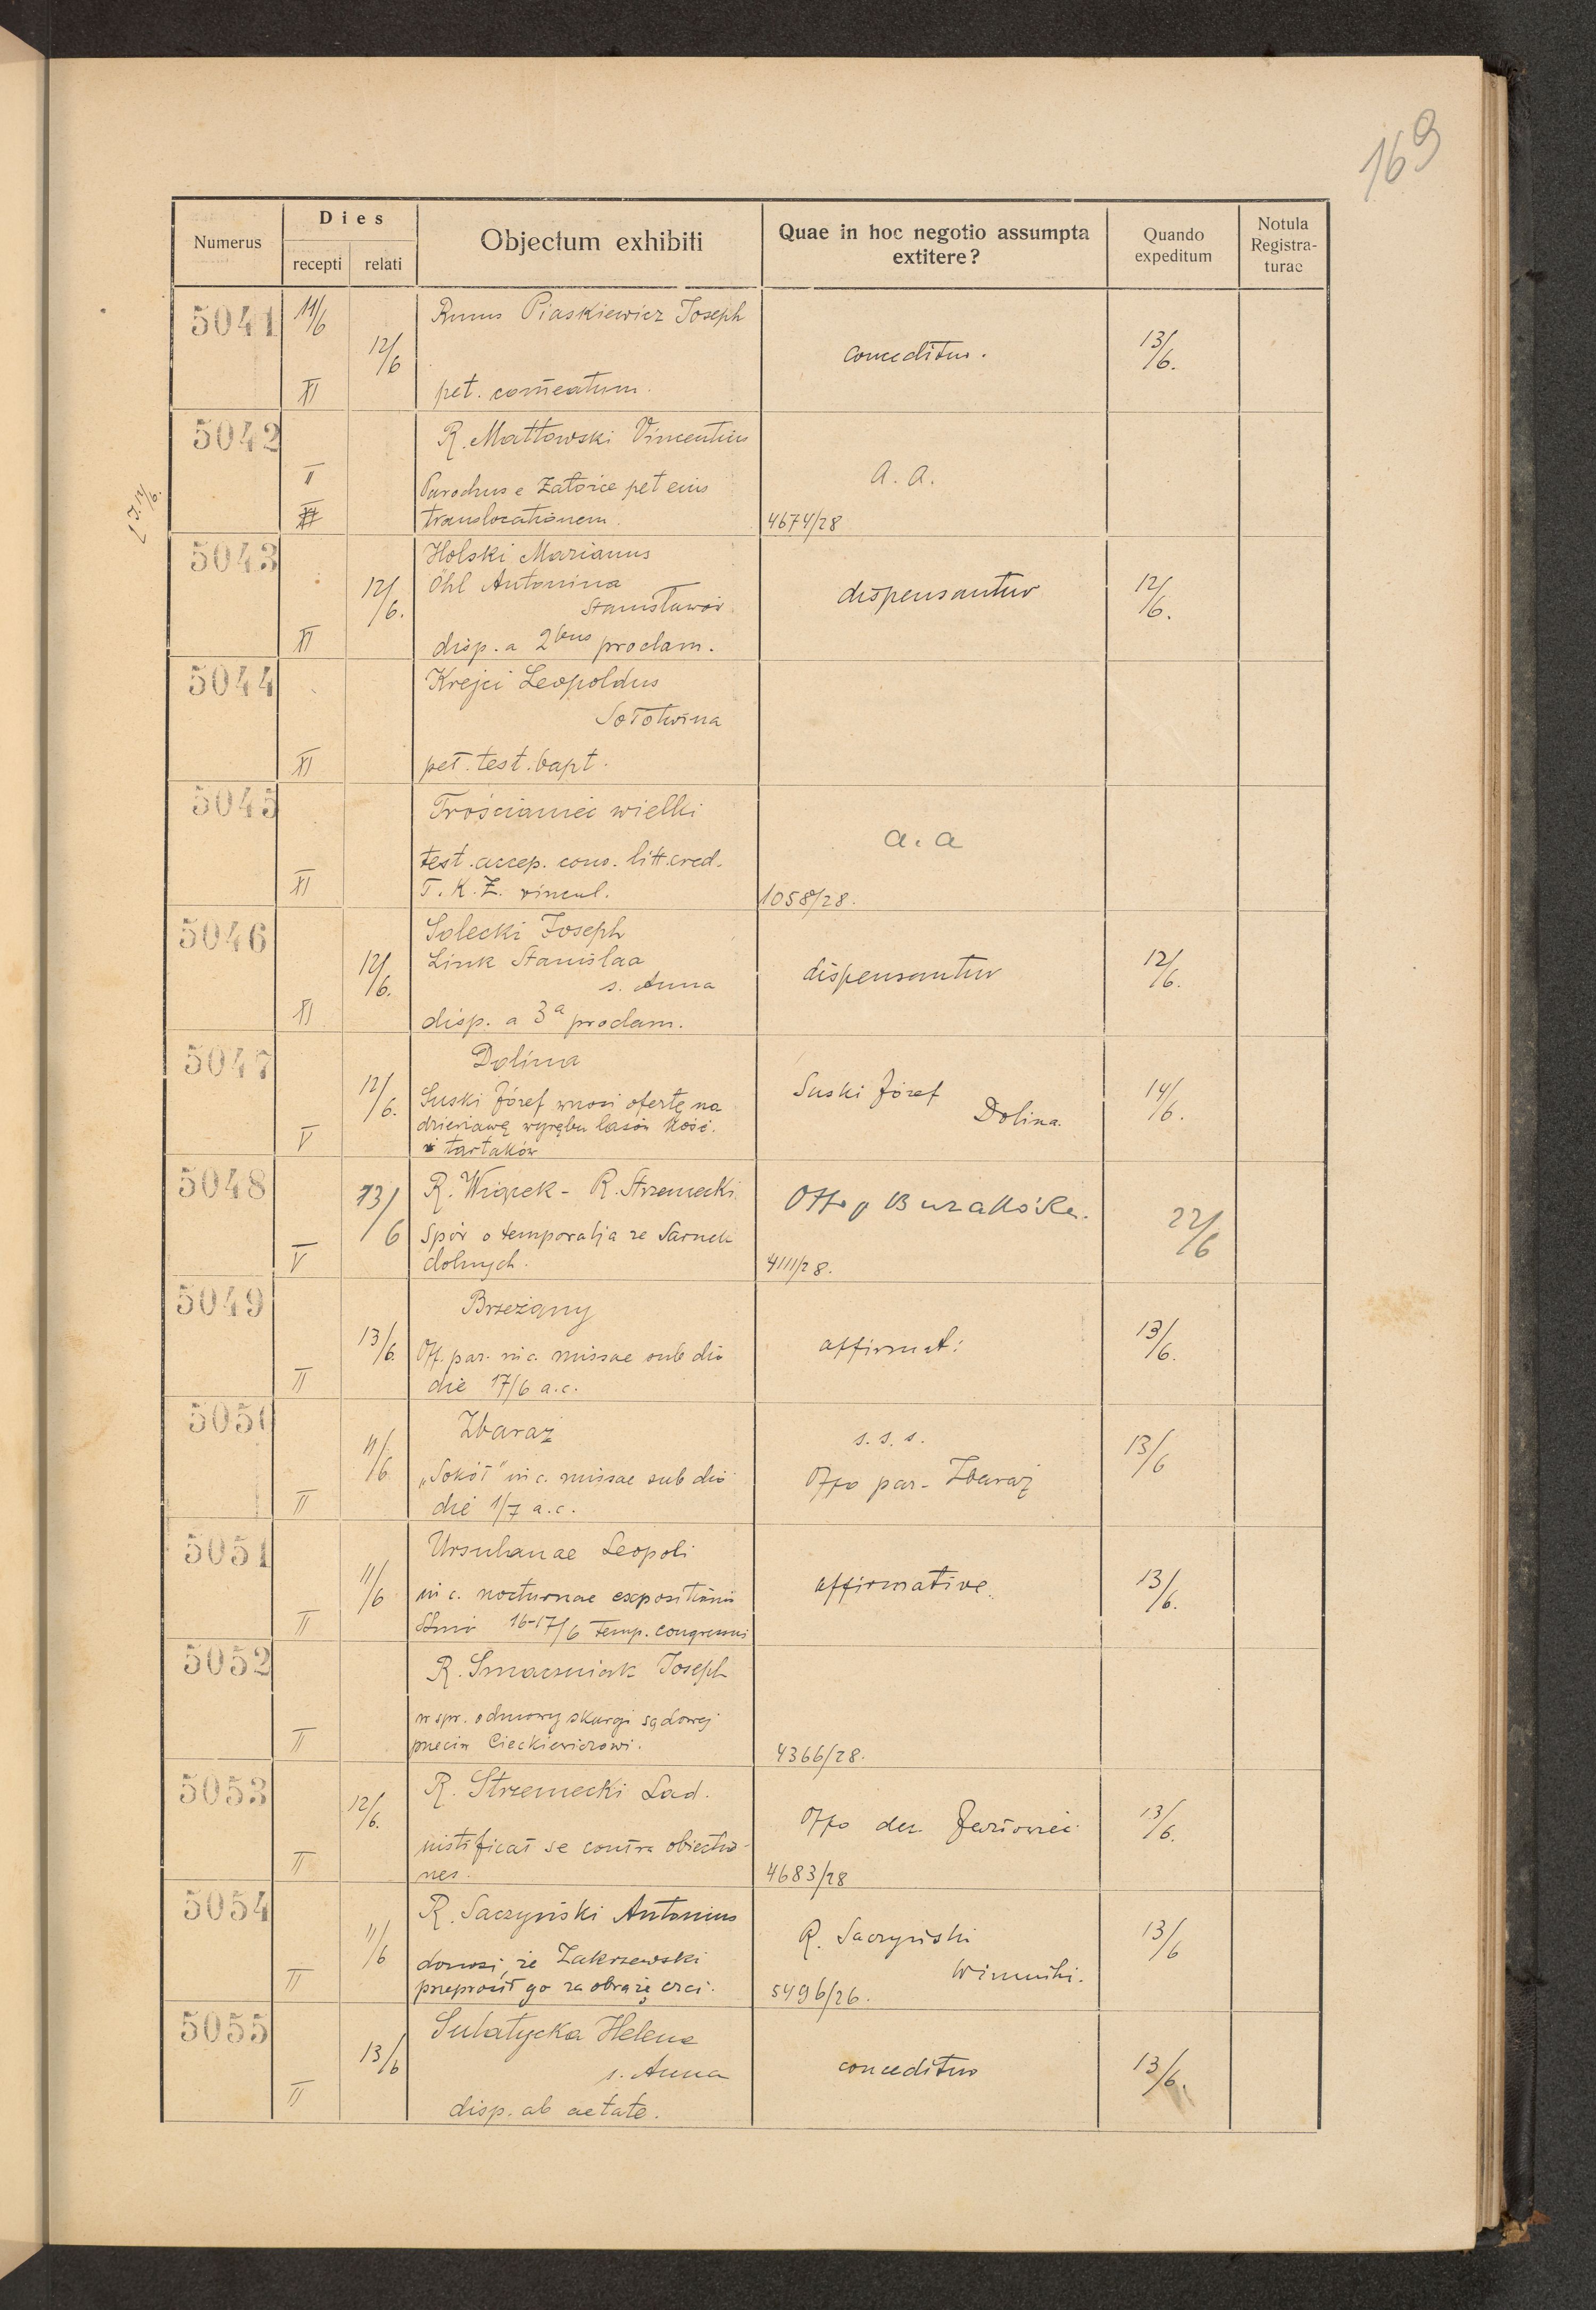 169
Numerus
Dies
recepti relati
Objectum exhibiti
Quae in hoc negotio assumpta
extitere?
Quando
expeditum
Notula
Registra-
turae
5041 11/6 XI 12/6
Rmus Piaskiewicz Joseph
pet. comeatum.
conceditur.
13/6.
5042 II
R. Matłowski Vincentius
Parochus e Załoźce pet eius
translocationem.
a. a.
4674/28
5043 XI 12/6.
Holski Marianus
Öhl Antonina
Stanisławów
disp. a 2bus proclam.
dispensantur
12/6.
5044 XI
Krejci Leopoldus
Sołotwina
pet. test. bapt.
5045 XI
Trościaniec wielki
test. accep. cons. litt. cred.
T. K. Z. vincul.
a. a
1058/28.
5046 XI 12/6.
Solecki Joseph
Link Stanislaa
s. Anna
disp. a 3a proclam.
dispensantur
12/6.
5047 V 12/6.
Dolina
Suski Józef wnosi ofertę na
dzierżawę wyrębu lasów kość.
i tartaków
Suski Józef
Dolina.
14/6.
5048 V 13/6
R. Wiącek - R. Strzemecki
Spór o temporalja ze Sarnek
dolnych.
Offo p Burakówka.
4111/28.
22/6
5049 II 13/6.
Brzeżany
Off. par. in c. missae sub dio
die 17/6 a.c.
affirmat:
13/6.
5050 II 11/6.
Zbaraż
„Sokół" in c. missae sub dio
die 1/7 a.c.
s. s. s.
Offo par. Zbaraż
13/6
5051 II 11/6
Ursulanae Leopoli
in c. nocturnae expositionis
SSmi 16-17/6 temp. congressus
affirmative.
13/6.
5052 II
R. Smaczniak Joseph
w spr. odmowy skargi sądowej
przeciw Cieckiewiczowi.
4366/28.
5053 II 12/6.
R. Strzemecki Lad.
iustificat se contra obiectio-
nes.
Offo dec. Jazłowiec
4683/28
13/6.
5054 II 11/6
R. Saczyński Antonius
donosi, że Zakrzewski
przeprosił go za obrazę czci.
R. Saczyński
Winniki.
5496/26.
13/6
5055 II 13/6
Sulatycka Helena
s. Anna
disp. ab aetate.
conceditur
13/6.